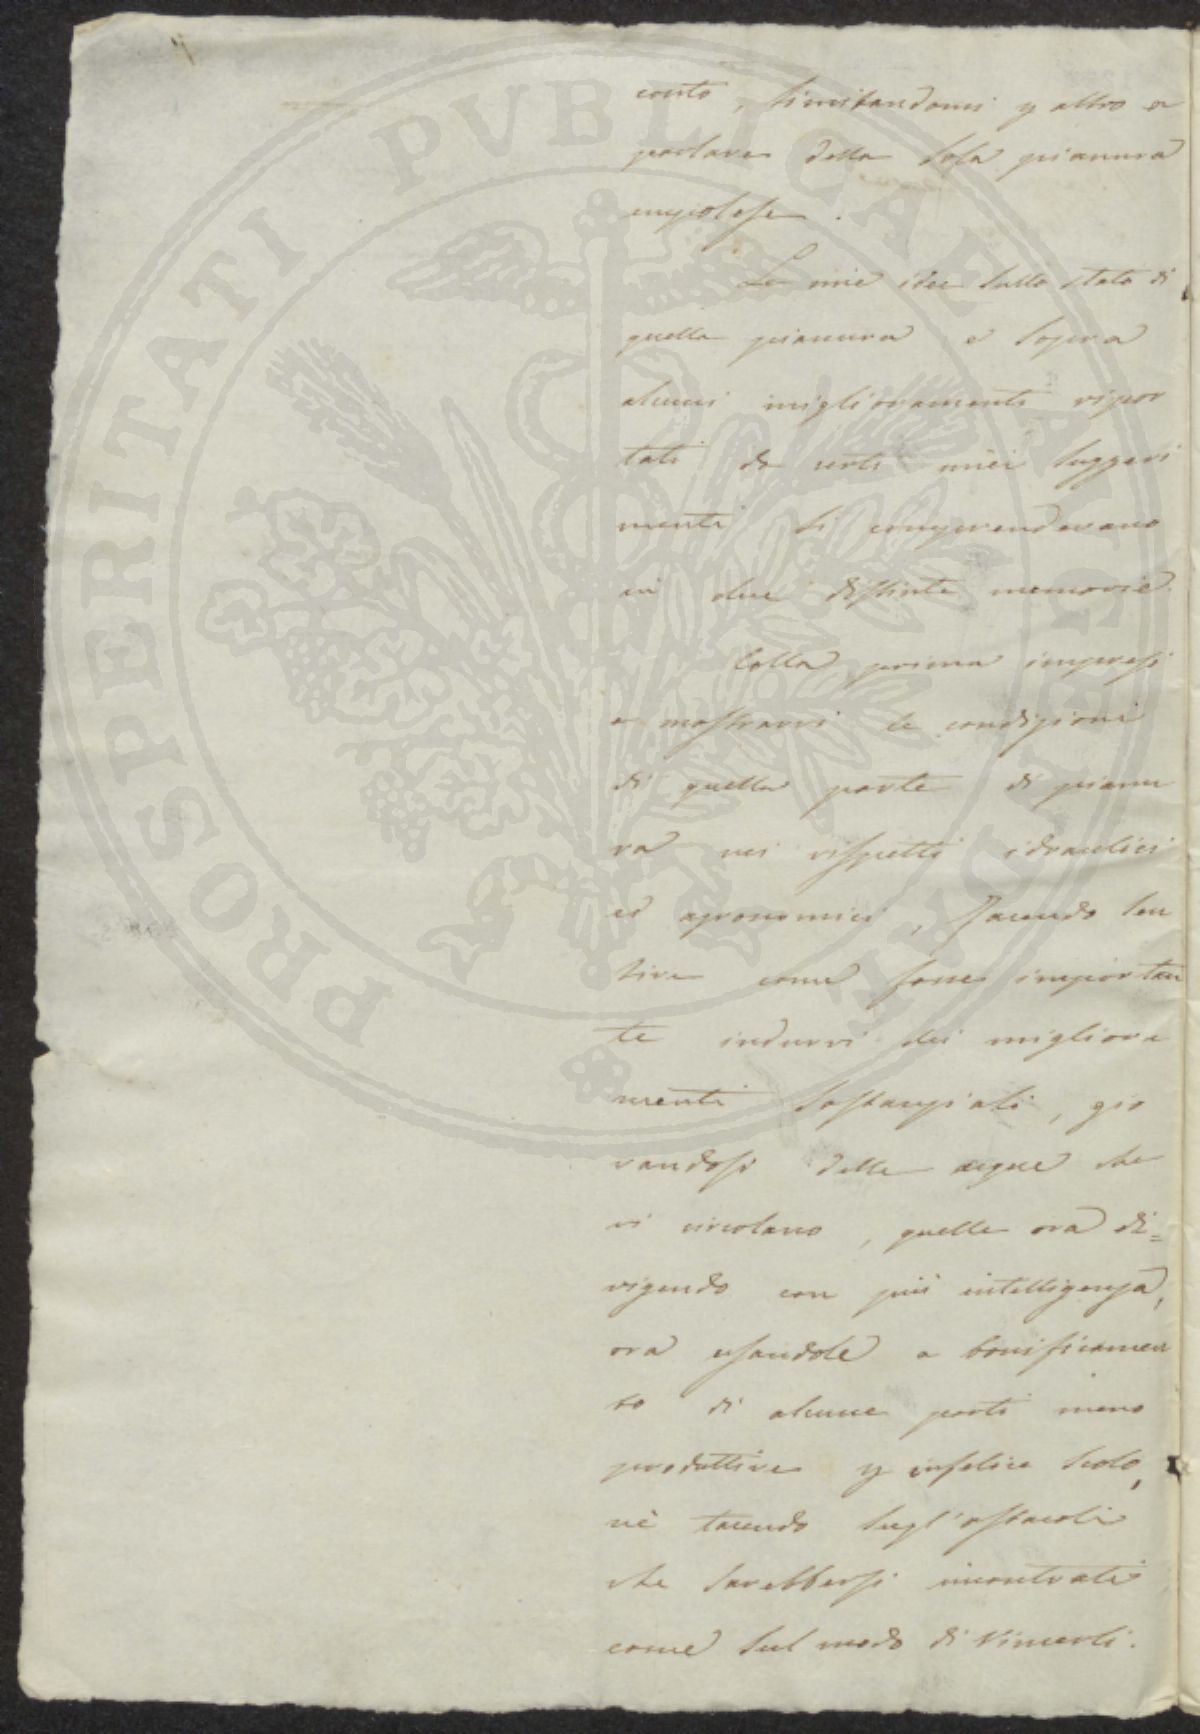 PROSPERITATI PVBLICAE AVGENDAE
conto, limitandomi p altro a
parlare della sola pianura
empolese.
Le mie idee sullo stato di
quella pianura e sopra
alcuni miglioramenti ripor
tati da certi miei suggeri
menti si comprendevano
in due distinte memorie.
Colla prima impresi
a mostrarvi le condizioni
di quella parte di pianu
ra nei rispetti idraulici
ed agronomici, facendo sen
tire come fosse importan
te indurvi dei migliora
menti sostanziali, gio
vandosi delle acque che
vi circolano, quelle ora di=
rigendo con più intelligenza,
ora usandole a bonificamen
to di alcune parti meno
produttive p infelice scolo,
nè tacendo sugl'ostacoli
che sarebbersi incontrati
come sul modo di vincerli.